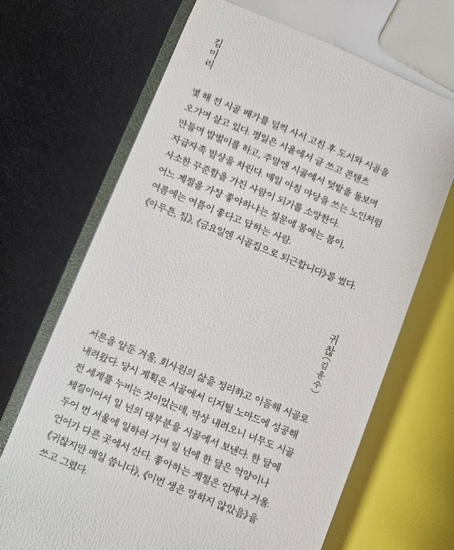 김미리
몇 해 전 시골 폐가를 덜컥 사서 고친 후 도시와 시골을
오가며 살고 있다. 평일은 서울에서 글 쓰고 콘텐츠
만들며 밥벌이를 하고, 주말엔 시골에서 텃밭을 돌보며
자급자족 밥상을 차린다. 매일 아침 마당을 쓰는 노인처럼
사소한 꾸준함을 가진 사람이 되기를 소망한다.
어느 계절을 가장 좋아하냐는 질문에 봄에는 봄이,
여름에는 여름이 좋다고 답하는 사람.
《아무튼, 집》, 《금요일엔 시골집으로 퇴근합니다》를 썼다.
귀찮(김윤수)
서른을 앞둔 겨울, 회사원의 삶을 정리하고 이듬해 시골로
내려왔다. 당시 계획은 시골에서 디지털 노마드에 성공해
전 세계를 누비는 것이었는데, 막상 내려오니 너무도 시골
체질이어서 일 년의 대부분을 시골에서 보낸다. 한 달에
두어 번 서울에 일하러 가며 일 년에 한 달은 억양이나
언어가 다른 곳에서 산다. 좋아하는 계절은 언제나 겨울.
《귀찮지만 매일 씁니다》, 《이번 생은 망하지 않았음》을
쓰고 그렸다.